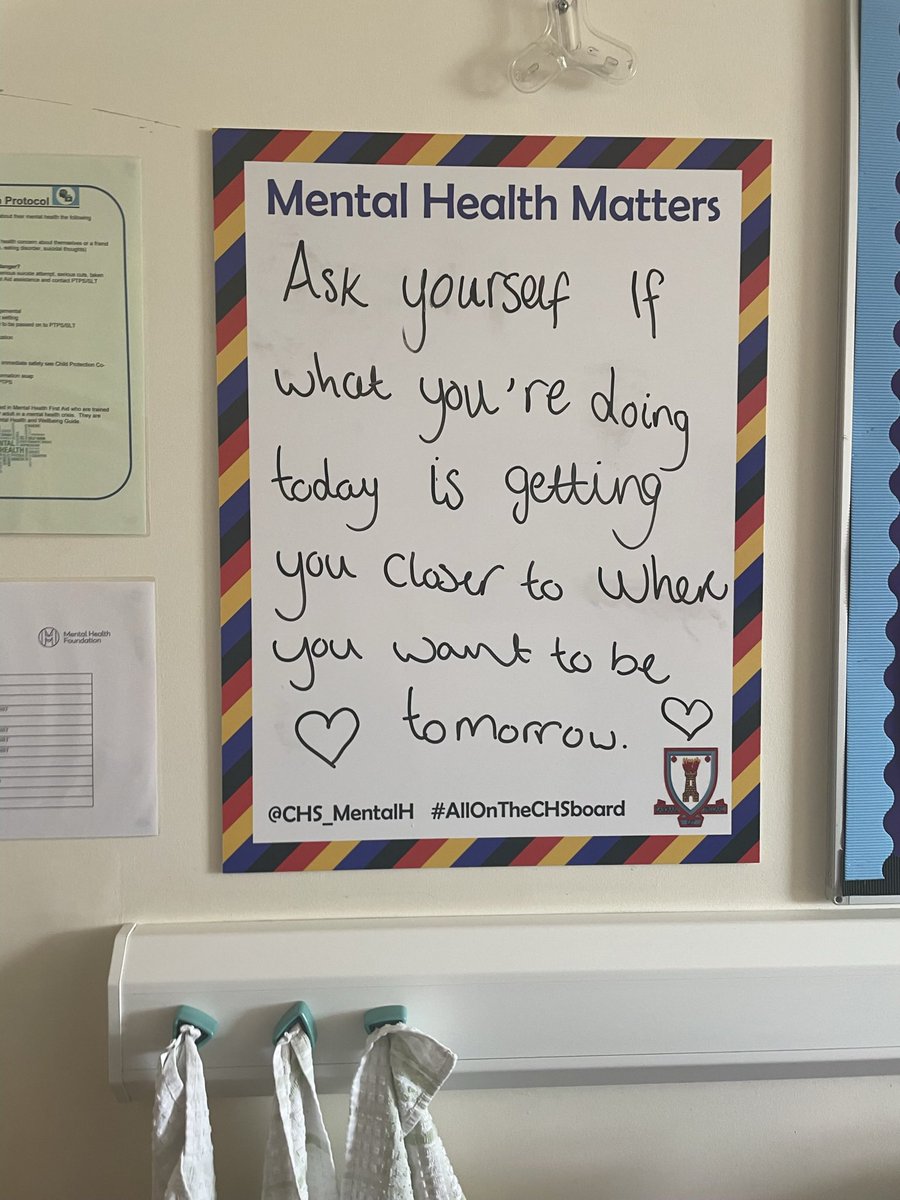 Mental Health Matters
Ask yourself If
what you're doing
today is getting
you closer to where
you want to be
tomorrow.
@CHS_MentalH #AllOnTheCHSboard
Protocol
about their mental health the following
health concern about themselves or a friend
eating disorder, suicidal thoughts)
danger?
serious suicide attempt, serious cuts, taken
Aid assistance and contact PTPS/SLT
setting
to be passed on to PTPS/SLT
immediate safety see Child Protection Co-
formation asap
PTPS
in Mental Health First Aid who are trained
adult in a mental health crisis. They are
Health and Wellbeing Guide.
HEALTH
Mental Health
Foundation